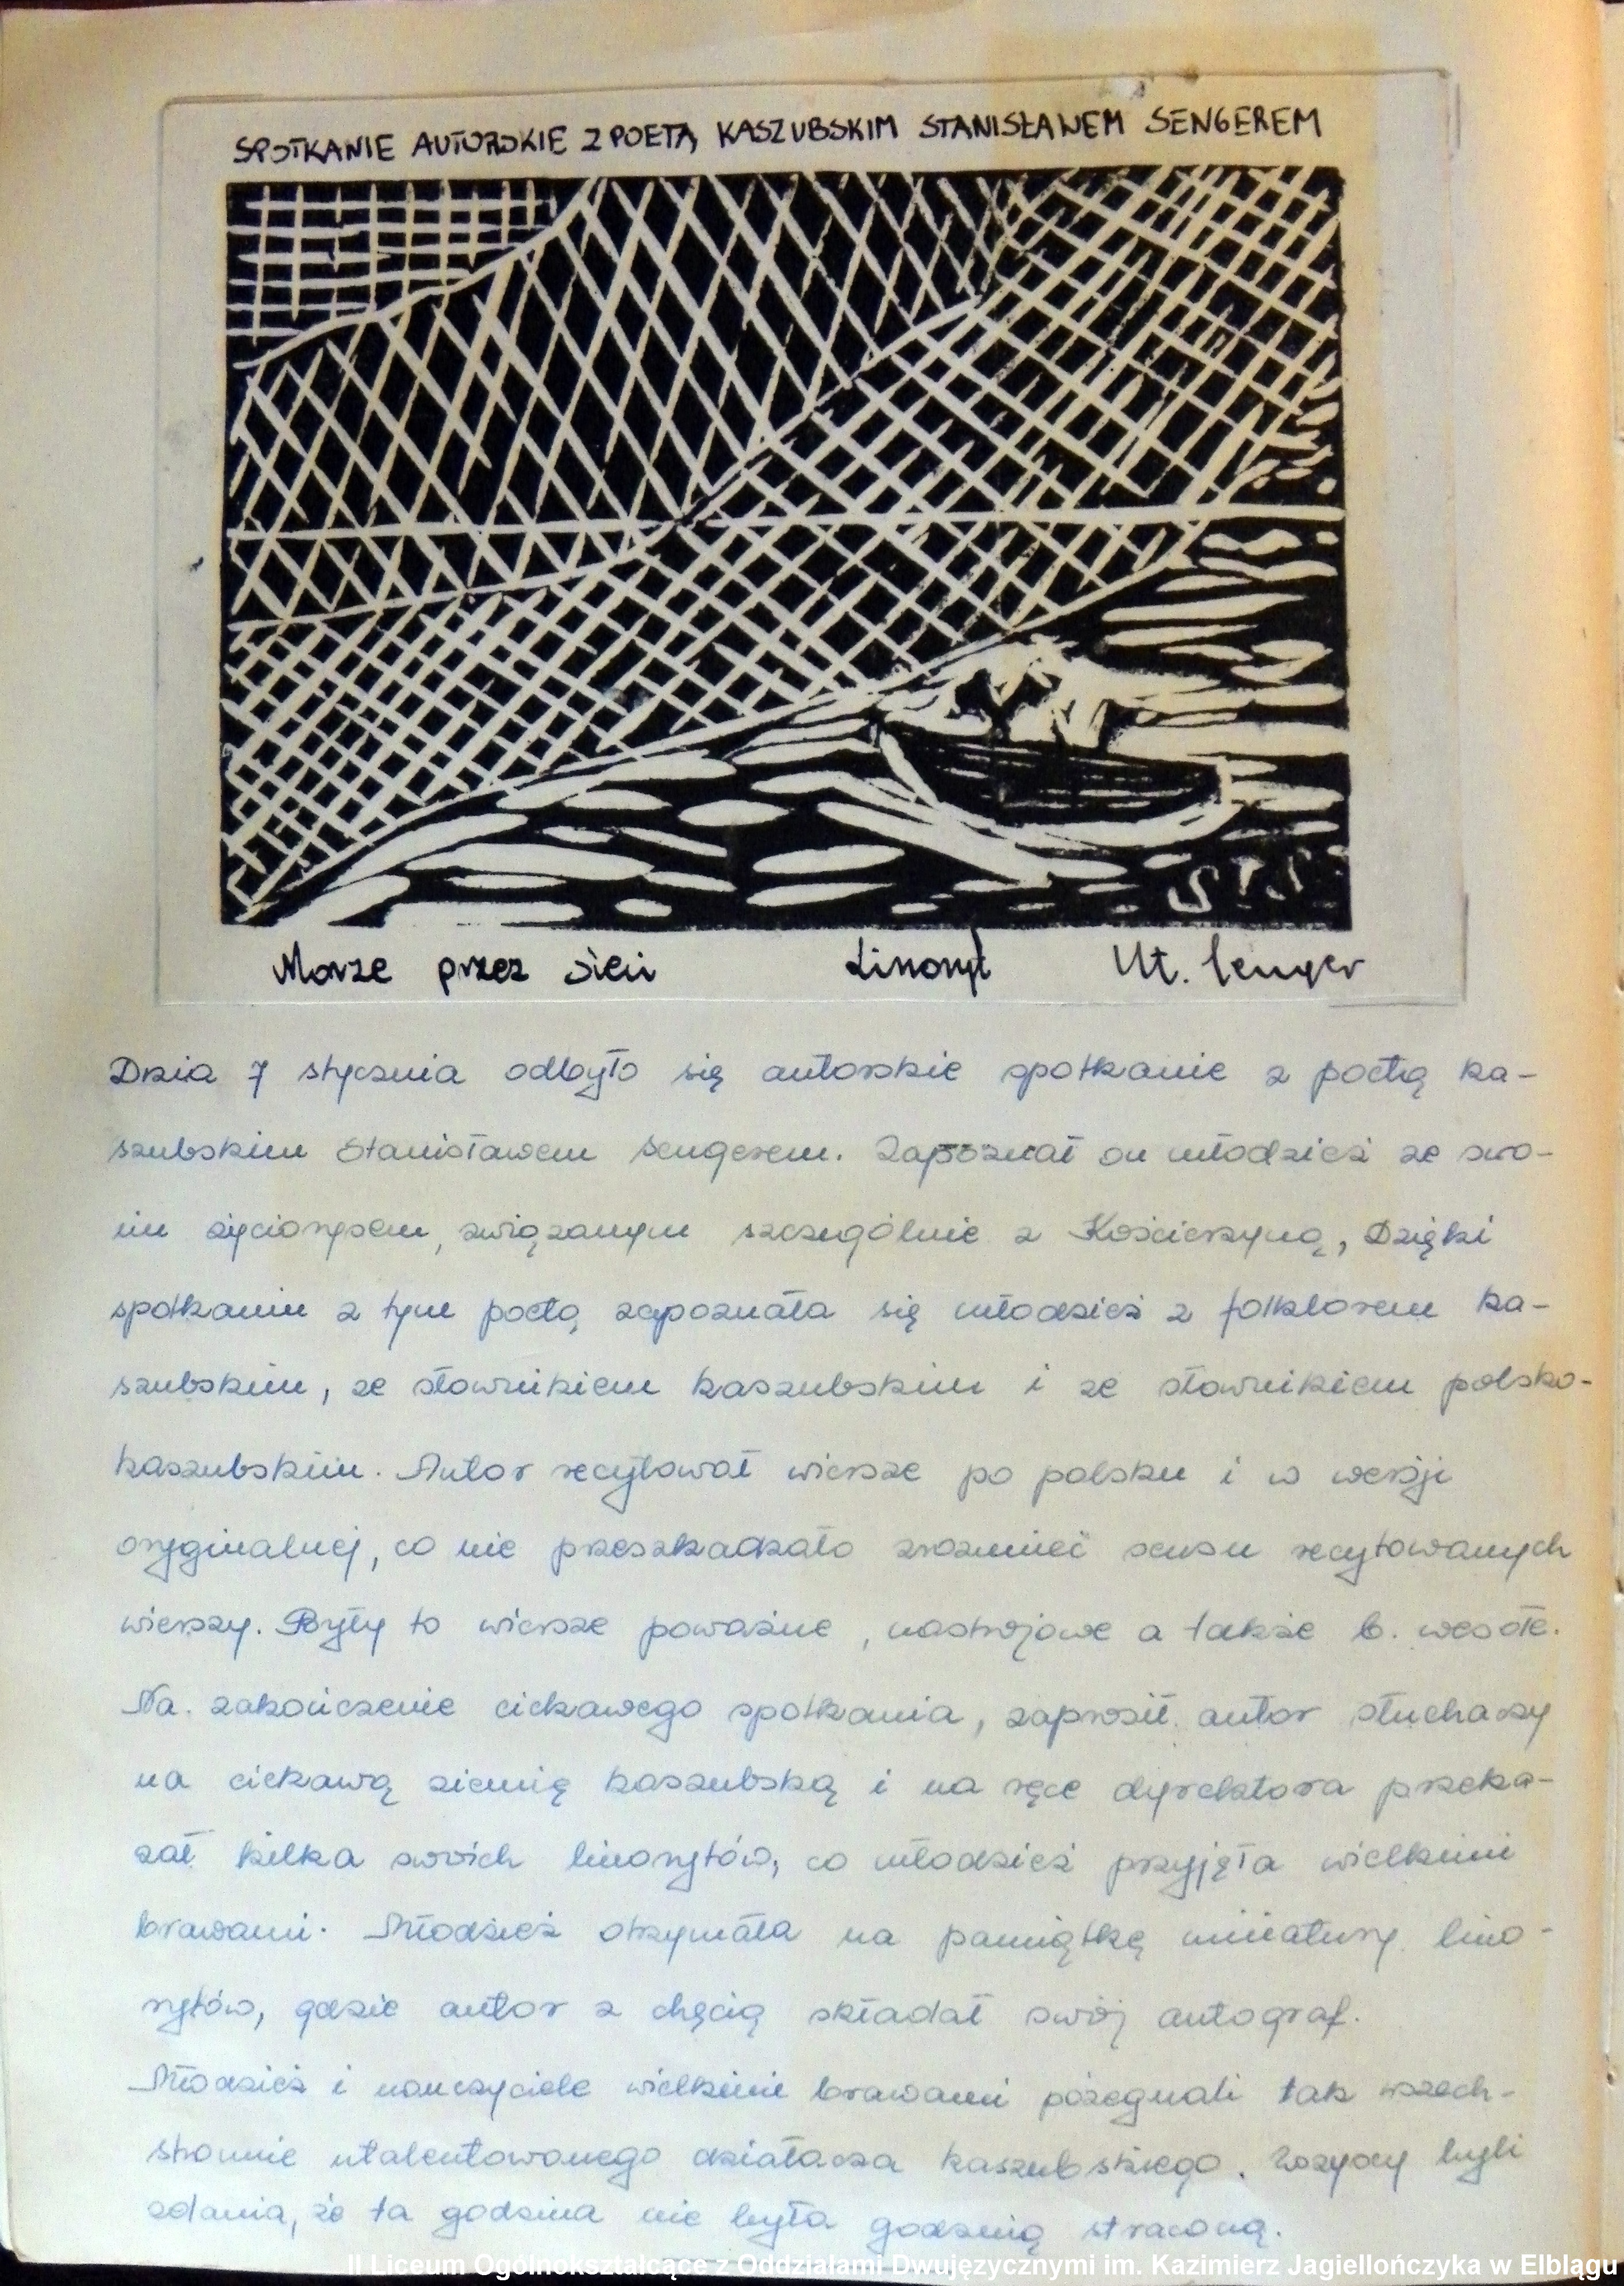 SPOTKANIE AUTORSKIE Z POETĄ KASZUBSKIM STANISŁAWEM SENGEREM
Morze przez sieci Linoryt St. Senger
Dnia 7 stycznia odbyło się autorskie spotkanie z poetą ka-
szubskim Stanisławem Sengerem. Zapoznał on młodzież ze swo-
im życiorysem, związanym szczególnie z Kościerzyną, Dzięki
spotkaniu z tym poetą zapoznała się młodzież z folklorem ka-
szubskim, ze słownikiem kaszubskim i ze słownikiem polsko-
kaszubskim. Autor recytował wiersze po polsku i w wersji
oryginalnej, co nie przeszkadzało zrozumieć sensu recytowanych
wierszy. Były to wiersze poważne, nastrojowe a także b. wesołe.
Na zakończenie ciekawego spotkania, zaprosił autor słuchaczy
na ciekawą ziemię kaszubską i na ręce dyrektora przeka-
zał kilka swoich linorytów, co młodzież przyjęła wielkimi
brawami. Młodzież otrzymała na pamiątkę miniatury lino-
rytów, gdzie autor z chęcią składał swój autograf.
Młodzież i nauczyciele wielkimi brawami pożegnali tak wszech-
stronnie utalentowanego działacza kaszubskiego. Wszyscy byli
zdania, że ta godzina nie była godziną straconą.
II Liceum Ogólnokształcące z Oddziałami Dwujęzycznymi im. Kazimierz Jagiellończyka w Elblągu